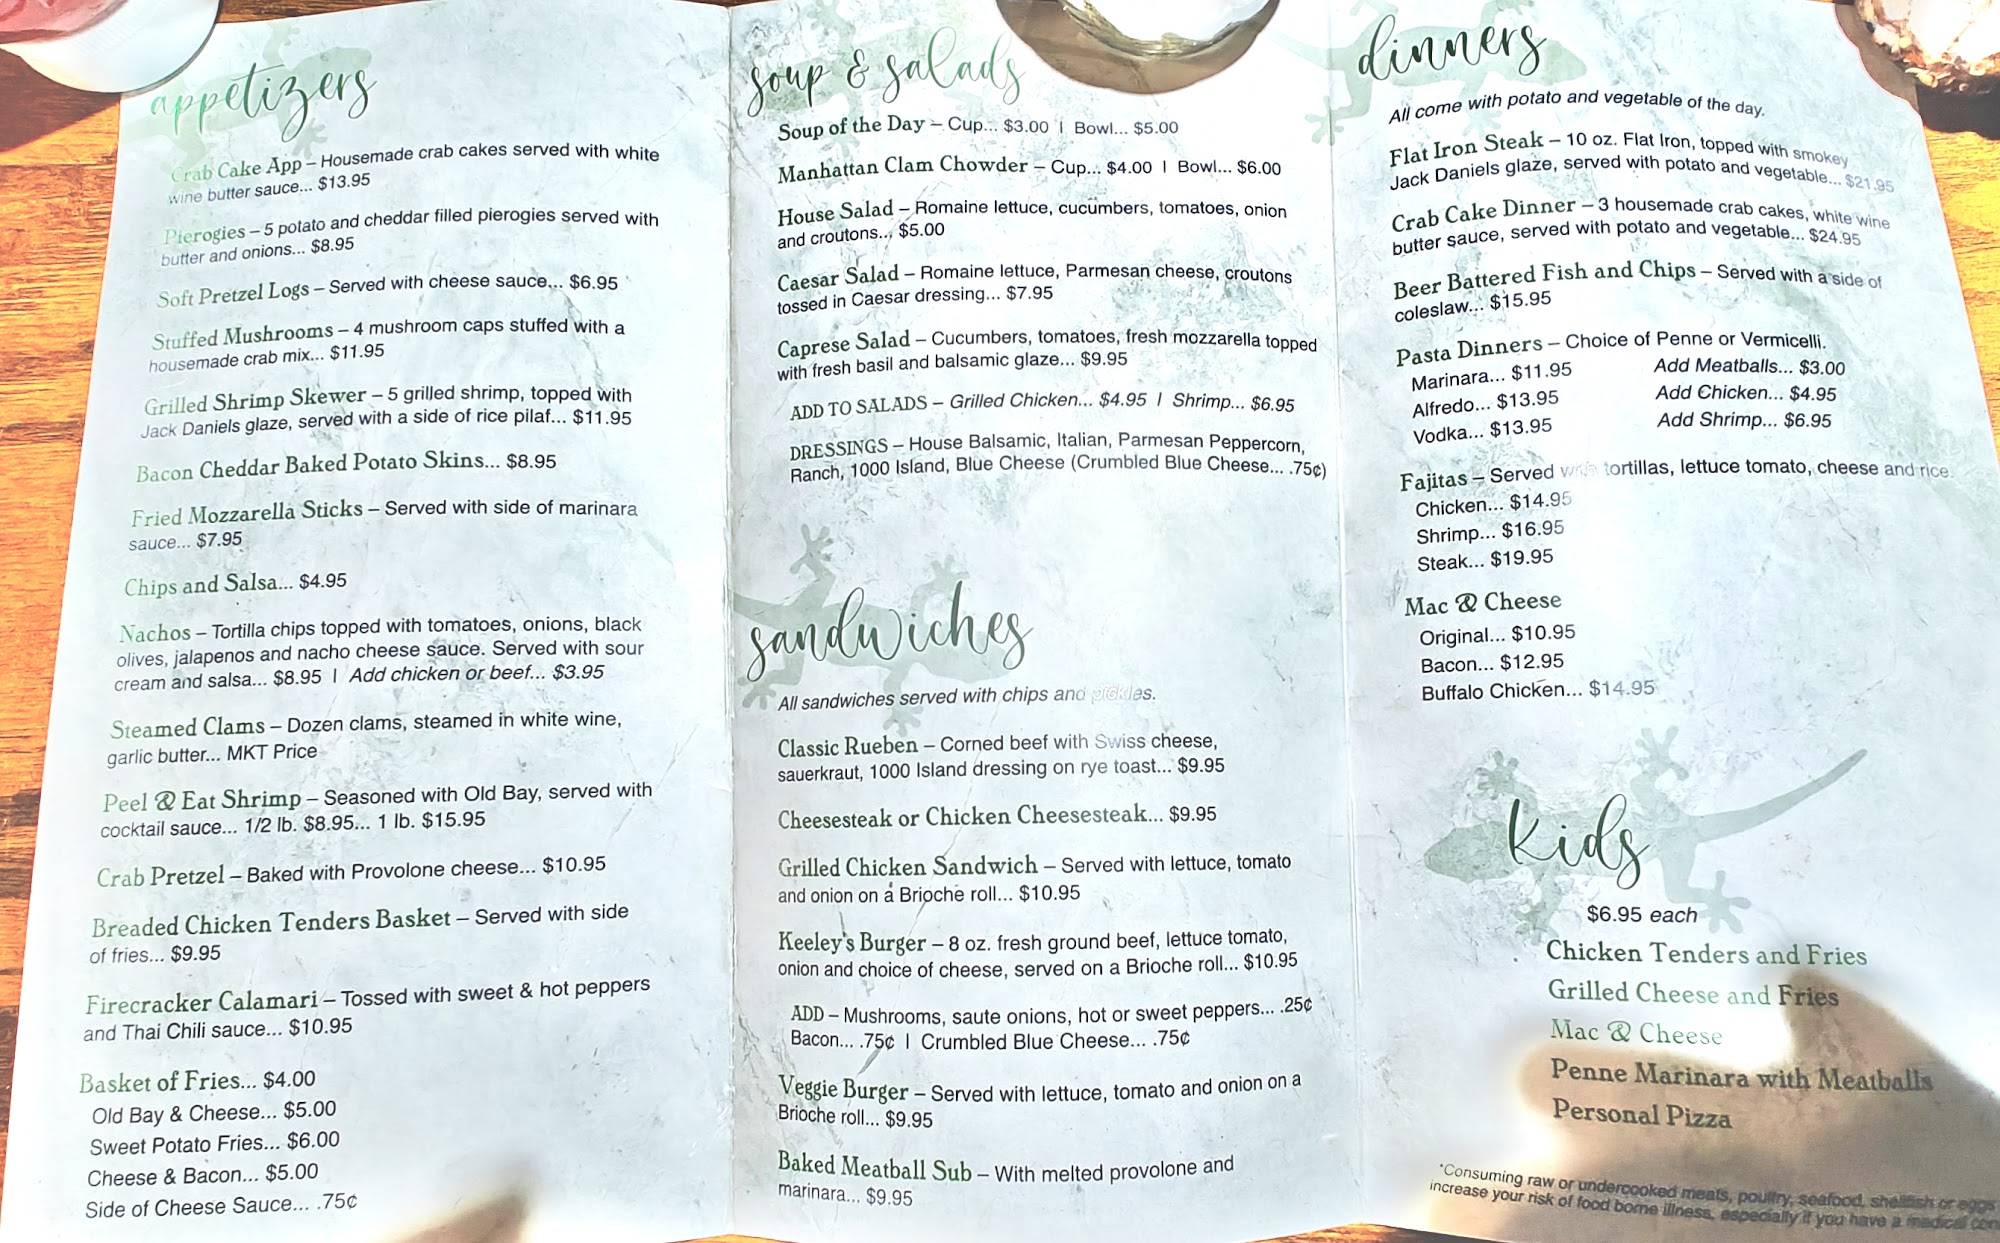 appetizers
Crab Cake App – Housemade crab cakes served with white
wine butter sauce... $13.95
Pierogies – 5 potato and cheddar filled pierogies served with
butter and onions... $8.95
Soft Pretzel Logs – Served with cheese sauce... $6.95
Stuffed Mushrooms – 4 mushroom caps stuffed with a
housemade crab mix... $11.95
Grilled Shrimp Skewer – 5 grilled shrimp, topped with
Jack Daniels glaze, served with a side of rice pilaf... $11.95
Bacon Cheddar Baked Potato Skins... $8.95
Fried Mozzarella Sticks – Served with side of marinara
sauce... $7.95
Chips and Salsa... $4.95
Nachos – Tortilla chips topped with tomatoes, onions, black
olives, jalapenos and nacho cheese sauce. Served with sour
cream and salsa... $8.95 | Add chicken or beef... $3.95
Steamed Clams – Dozen clams, steamed in white wine,
garlic butter... MKT Price
Peel & Eat Shrimp – Seasoned with Old Bay, served with
cocktail sauce... 1/2 lb. $8.95... 1 lb. $15.95
Crab Pretzel – Baked with Provolone cheese... $10.95
Breaded Chicken Tenders Basket – Served with side
of fries... $9.95
Firecracker Calamari – Tossed with sweet & hot peppers
and Thai Chili sauce... $10.95
Basket of Fries... $4.00
Old Bay & Cheese... $5.00
Sweet Potato Fries... $6.00
Cheese & Bacon... $5.00
Side of Cheese Sauce... .75¢
soup & salads
Soup of the Day – Cup... $3.00 | Bowl... $5.00
Manhattan Clam Chowder – Cup... $4.00 | Bowl... $6.00
House Salad – Romaine lettuce, cucumbers, tomatoes, onion
and croutons... $5.00
Caesar Salad – Romaine lettuce, Parmesan cheese, croutons
tossed in Caesar dressing... $7.95
Caprese Salad – Cucumbers, tomatoes, fresh mozzarella topped
with fresh basil and balsamic glaze... $9.95
ADD TO SALADS – Grilled Chicken... $4.95 | Shrimp... $6.95
DRESSINGS – House Balsamic, Italian, Parmesan Peppercorn,
Ranch, 1000 Island, Blue Cheese (Crumbled Blue Cheese... .75¢)
sandwiches
All sandwiches served with chips and pickles.
Classic Rueben – Corned beef with Swiss cheese,
sauerkraut, 1000 Island dressing on rye toast... $9.95
Cheesesteak or Chicken Cheesesteak... $9.95
Grilled Chicken Sandwich – Served with lettuce, tomato
and onion on a Brioche roll... $10.95
Keeley's Burger – 8 oz. fresh ground beef, lettuce tomato,
onion and choice of cheese, served on a Brioche roll... $10.95
ADD – Mushrooms, saute onions, hot or sweet peppers... .25¢
Bacon... .75¢ | Crumbled Blue Cheese... .75¢
Veggie Burger – Served with lettuce, tomato and onion on a
Brioche roll... $9.95
Baked Meatball Sub – With melted provolone and
marinara... $9.95
dinners
All come with potato and vegetable of the day.
Flat Iron Steak – 10 oz. Flat Iron, topped with smokey
Jack Daniels glaze, served with potato and vegetable... $21.95
Crab Cake Dinner – 3 housemade crab cakes, white wine
butter sauce, served with potato and vegetable... $24.95
Beer Battered Fish and Chips – Served with a side of
coleslaw... $15.95
Pasta Dinners – Choice of Penne or Vermicelli.
Marinara... $11.95 Add Meatballs... $3.00
Alfredo... $13.95 Add Chicken... $4.95
Vodka... $13.95 Add Shrimp... $6.95
Fajitas – Served with tortillas, lettuce tomato, cheese and rice.
Chicken... $14.95
Shrimp... $16.95
Steak... $19.95
Mac & Cheese
Original... $10.95
Bacon... $12.95
Buffalo Chicken... $14.95
Kids
$6.95 each
Chicken Tenders and Fries
Grilled Cheese and Fries
Mac & Cheese
Penne Marinara with Meatballs
Personal Pizza
*Consuming raw or undercooked meats, poultry, seafood, shellfish or eggs
increase your risk of food borne illness, especially if you have a medical con